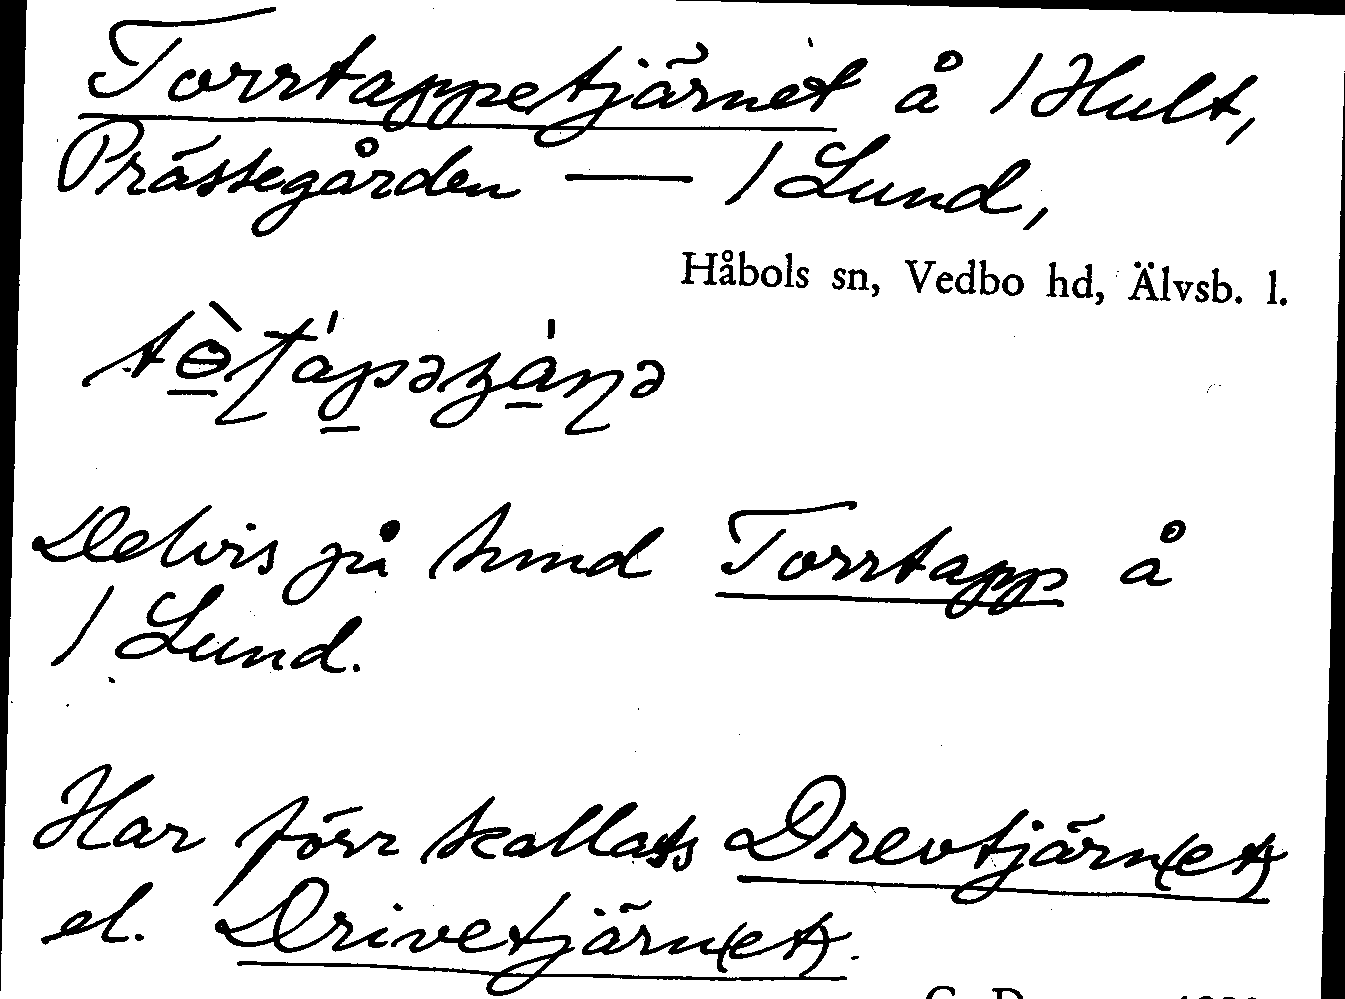 Torrtappetjärnet å 1 Hult,
Prässegården — 1 Lund,
Håbols sn, Vedbo hd, Älvsb. l.
Delvis på hmd Torrtapp å
1 Lund.
Har förr kallats Drevtjärn(et)
el. Drivetjärn(et).